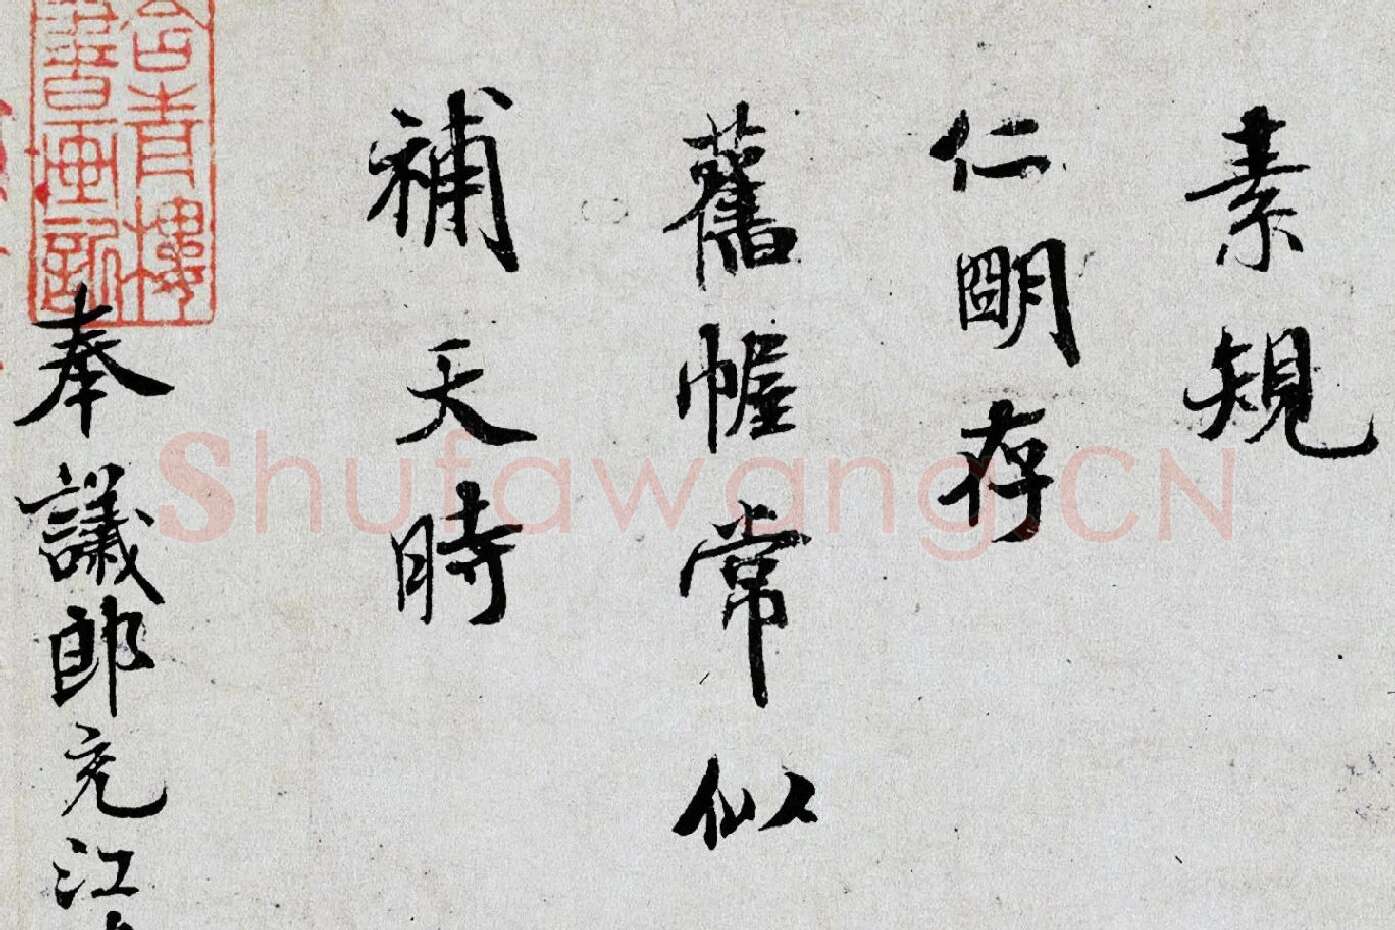 素規
仁明存
舊幄常似
補天時
奉議郎充江
Shufawang.CN